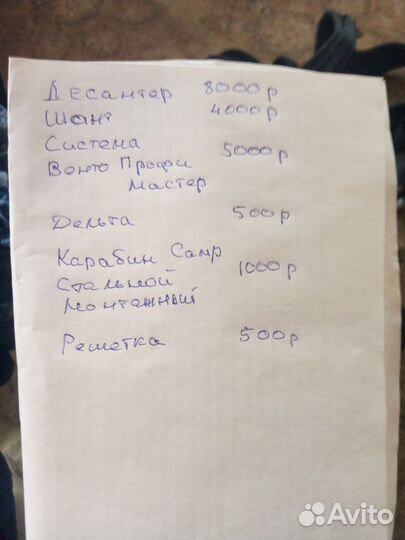 Десантер 8000р
Шант 4000р
Система
Венто Профи 5000р
Мастер
Дельта 500р
Карабин Camp
Стальной 1000р
монтажный
Решетка 500р
Avito